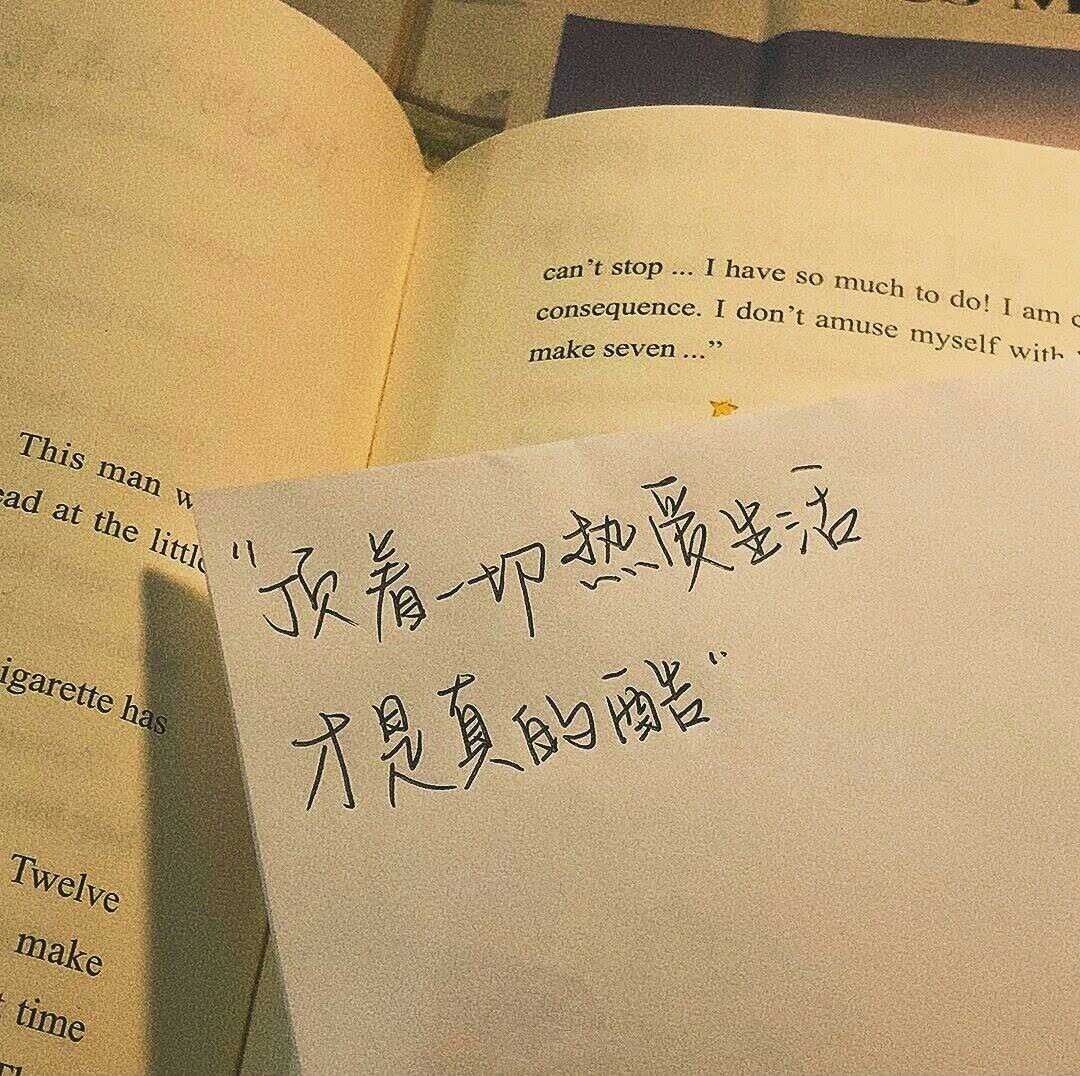 can't stop ... I have so much to do! I am
consequence. I don't amuse myself with
make seven ..."
This man
at the little
has
Twelve
make
time
"顶着一切热爱生活
才是真的酷"